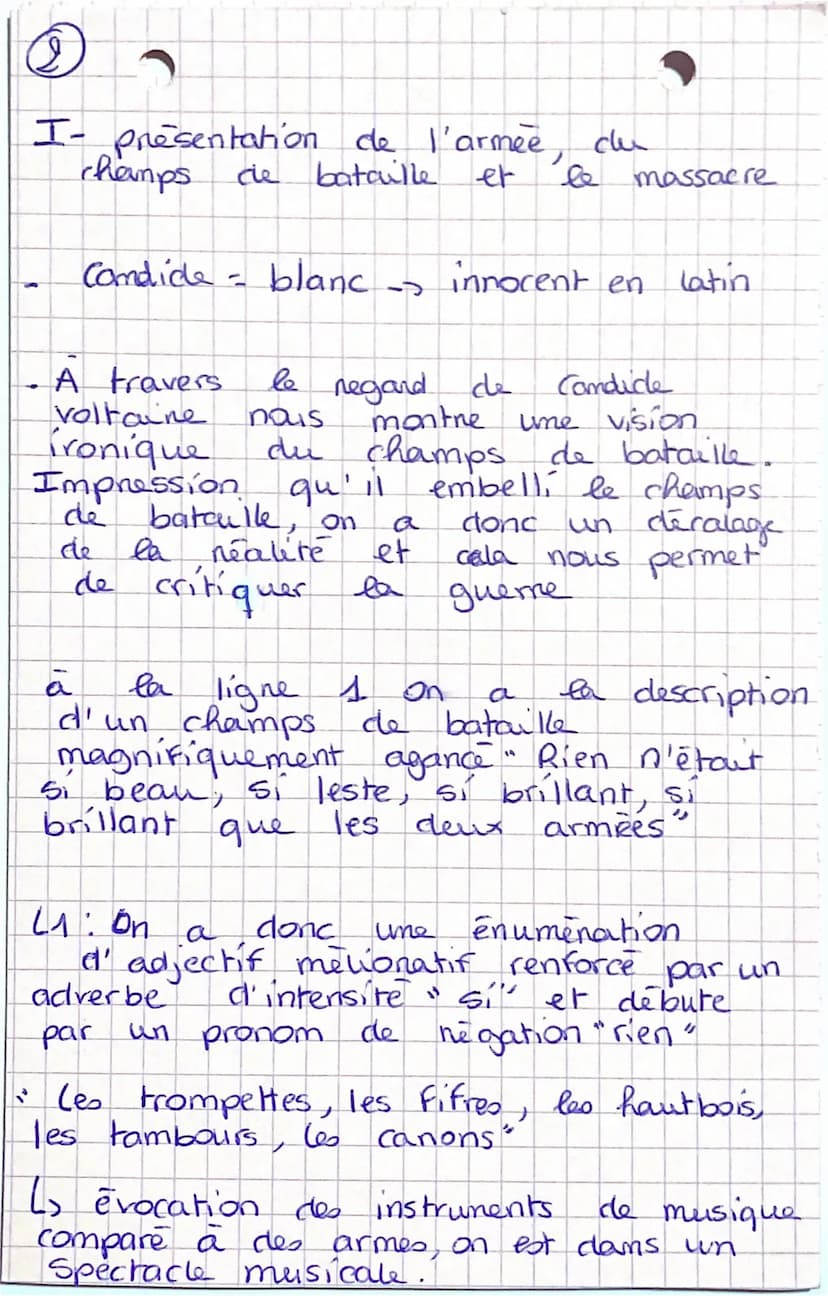 2
I- présentation de l'armée, du
champs de bataille et le massacre
- Candide = blanc -> innocent en latin
- À travers le regard de Candide
Voltaire nous montre une vision
ironique du champs de bataille.
Impression qu'il embelli le champs
de bataille, on a donc un décalage
de la réalité et cela nous permet
de critiquer la guerre
à la ligne 1 on a la description
d'un champs de bataille
magnifiquement agancé " Rien n'était
si beau, si leste, si brillant, si
brillant que les deux armées"
L1 : On a donc une énumération
d'adjectif mélioratif renforcé par un
adverbe d'intensité " si" et débute
par un pronom de négation "rien"
" Les trompettes, les fifres, les hautbois,
les tambours, les canons"
↳ évocation des instruments de musique
comparé à des armes, on est dans un
spectacle musicale.